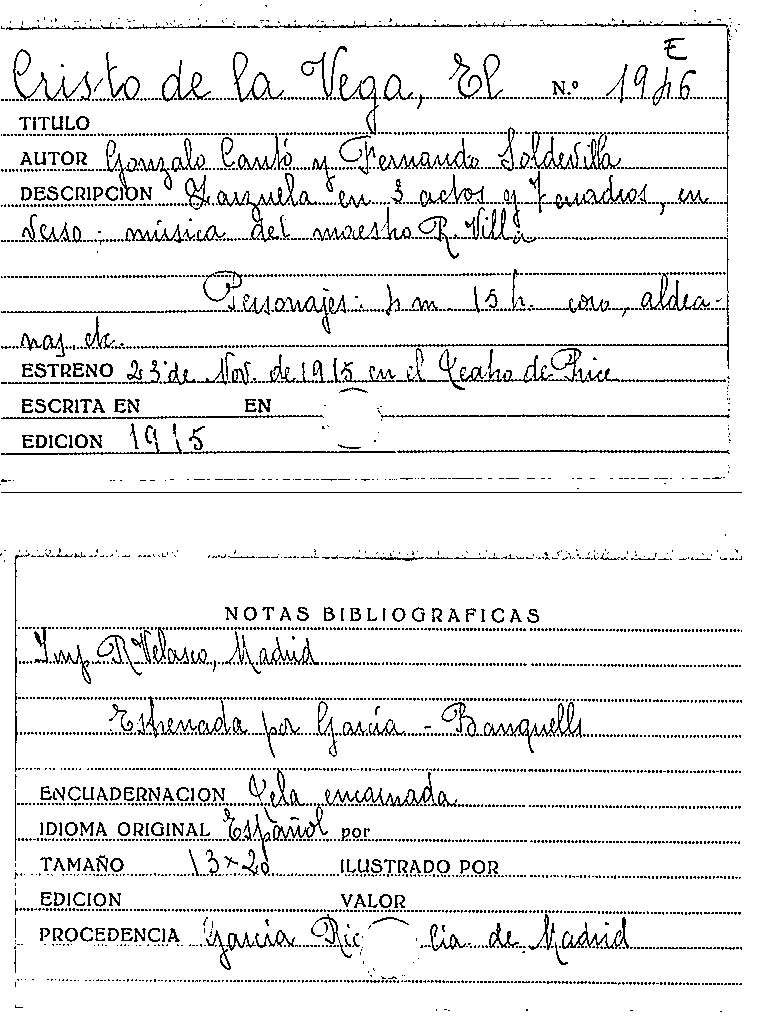 E
Cristo de la Vega, El N.º 1946
TITULO
AUTOR Gonzalo Cantó y Fernando Soldevilla
DESCRIPCION Zarzuela en 3 actos y 7 cuadros, en
verso; música del maestro R. Villa
Personajes: 4 m 15 h. coro, aldea-
nas, etc.
ESTRENO 23 de Nov. de 1915 en el Teatro de Price
ESCRITA EN EN
EDICION 1915
NOTAS BIBLIOGRAFICAS
Imp. R Velasco, Madrid
Estrenada por García - Banquells
ENCUADERNACION Tela encarnada
IDIOMA ORIGINAL Español por
TAMAÑO 13 x 20 ILUSTRADO POR
EDICION VALOR
PROCEDENCIA García Ric cía de Madrid